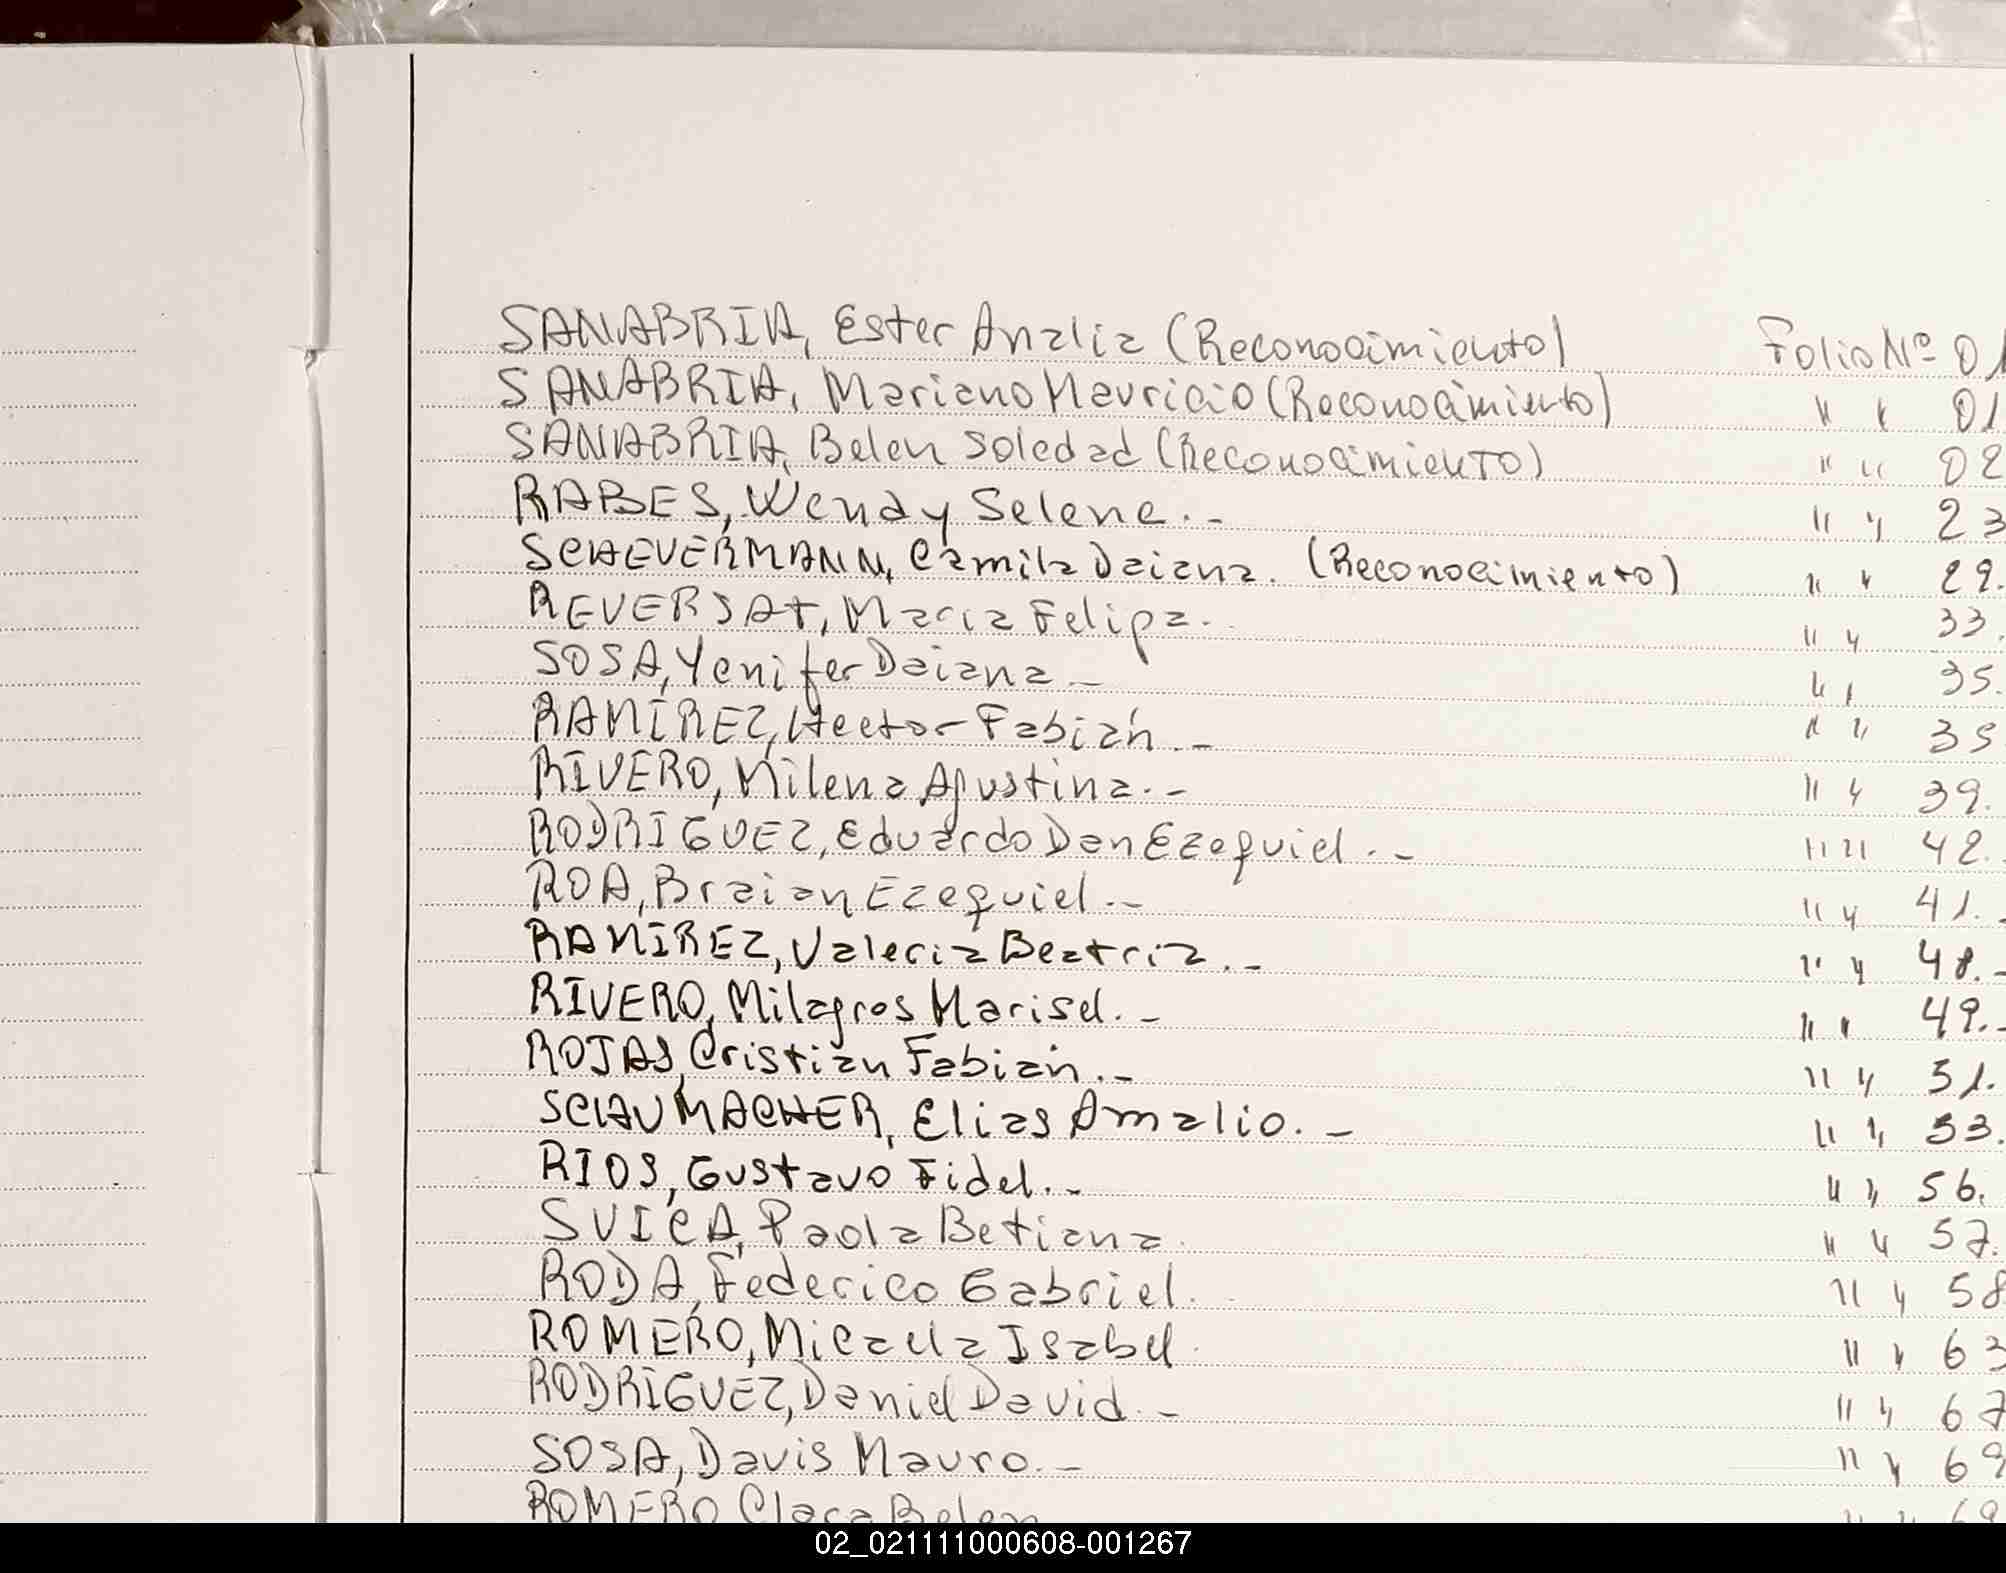 SANABRIA, Ester Analia (Reconocimiento) Folio Nº 01
SANABRIA, Mariano Mauricio (Reconocimiento) " " 01
SANABRIA, Belen Soledad (Reconocimiento) " " 02
RABES, Wendy Selene. - " " 23
SCHEVERMANN, Camila Daiana. (Reconocimiento) " " 29.
REVERSAT, Maria Felipa. " " 33.
SOSA, Yenifer Daiana - " " 35.
RAMIREZ, Hector Fabián. - " " 35
RIVERO, Milena Agustina. - " " 39.
RODRIGUEZ, Eduardo Dan Ezequiel. - " " 42.
ROA, Braian Ezequiel. - " " 41. -
RAMIREZ, Valeria Beatriz. - " " 48. -
RIVERO, Milagros Marisel. - " " 49. -
ROJAS, Cristian Fabián. - " " 51.
SCHUMACHER, Elias Amalio. - " " 53.
RIOS, Gustavo Fidel. - " " 56.
SVICA, Paola Betiana. " " 57.
RODA, Federico Gabriel. " " 58
ROMERO, Micaela Isabel. " " 63
RODRIGUEZ, Daniel David. - " " 67
SOSA, Davis Mauro. - " " 69
ROMERO Clara Belen " " 69
02_021111000608-001267